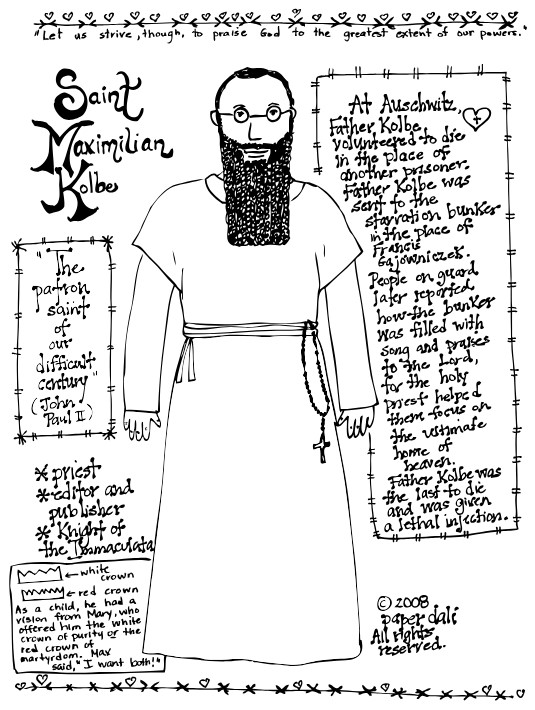 "Let us strive, though, to praise God to the greatest extent of our powers."
Saint
Maximilian
Kolbe
"The
patron
saint
of
our
difficult
century"
(John
Paul II)
* priest
* editor and
publisher
* Knight of
the Immaculata
← white
crown
← red crown
As a child, he had a
vision from Mary, who
offered him the white
crown of purity or the
red crown of
martyrdom. Max
said, "I want both!"
At Auschwitz,
Father Kolbe
volunteered to die
in the place of
another prisoner.
Father Kolbe was
sent to the
starvation bunker
in the place of
Francis
Gajowniczek.
People on guard
later reported
how the bunker
was filled with
song and praises
to the Lord,
for the holy
priest helped
them focus on
the ultimate
home of
heaven.
Father Kolbe was
the last to die
and was given
a lethal injection.
© 2008
paper dali
All rights
reserved.